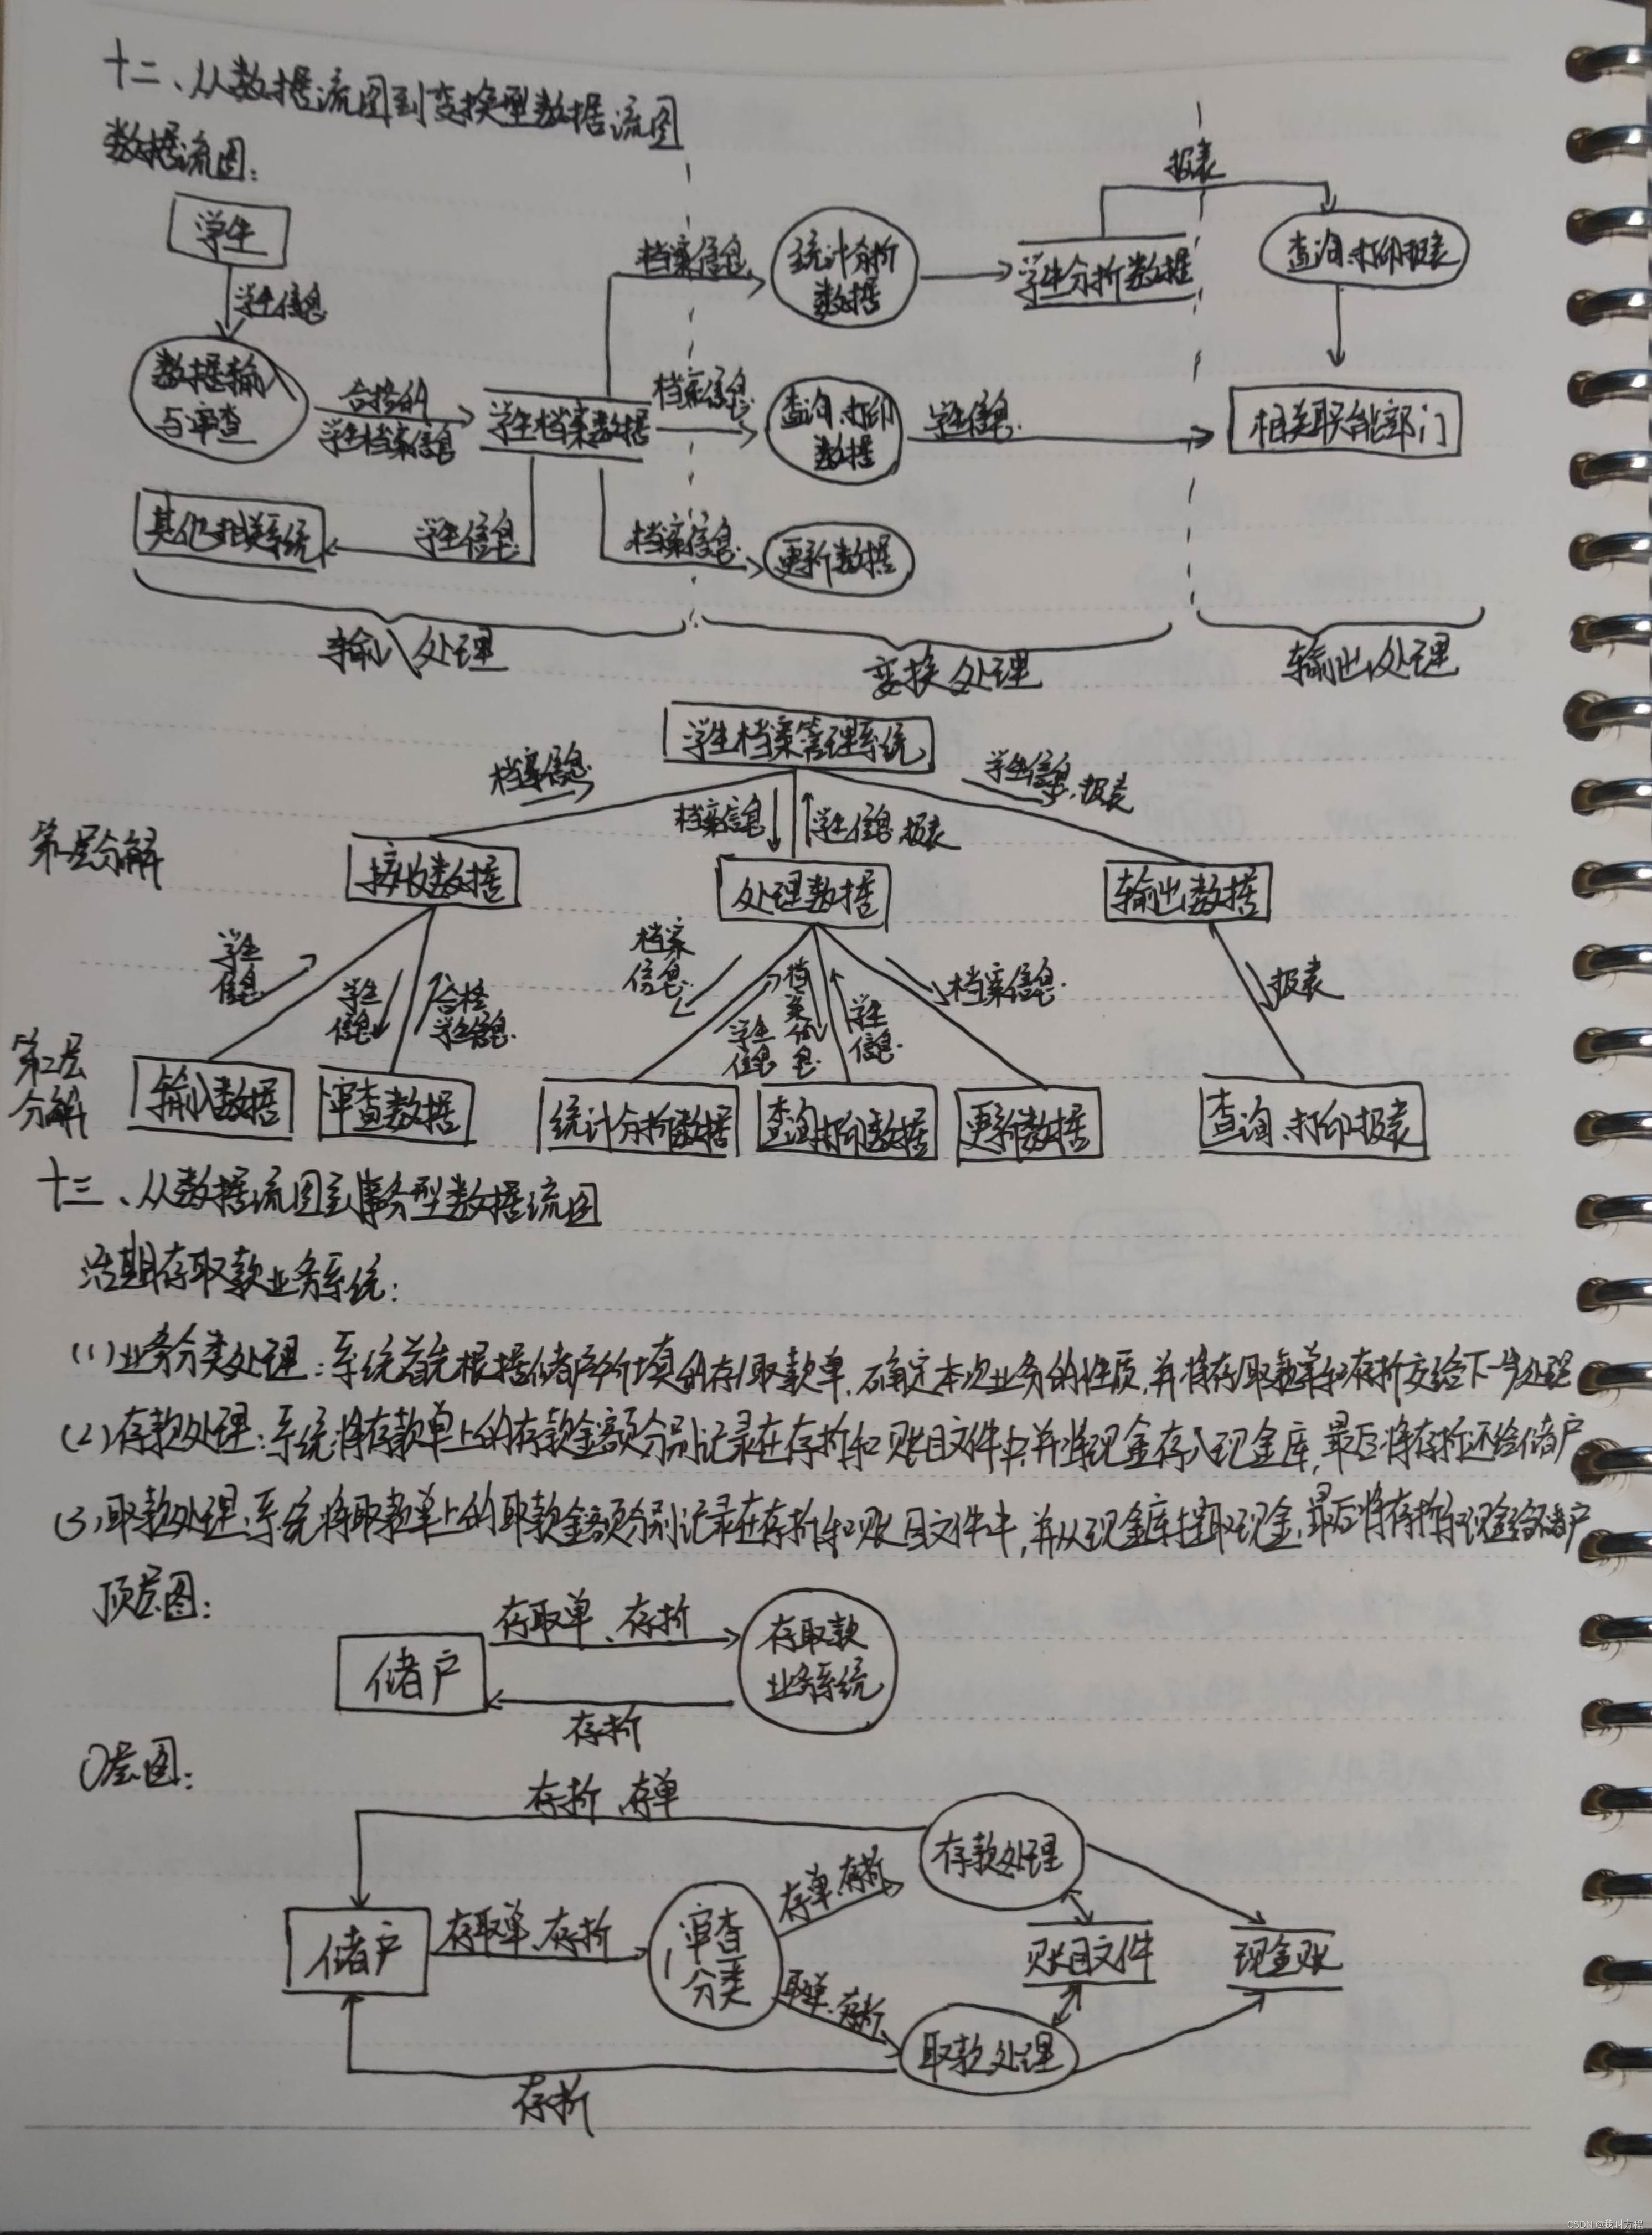 十二、从数据流图到变换型数据流图
数据流图:
报表
学生
档案信息
统计分析
数据
学生分析数据
查询、打印报表
学生信息
数据输入
与审查
合格的
学生档案信息
学生档案数据
档案信息
查询、打印
数据
学生信息
相关职能部门
其他相关系统
学生信息
档案信息
更新数据
输入处理
变换处理
输出处理
学生档案管理系统
档案信息
档案信息
学生信息、报表
学生信息、报表
第1层分解
接收数据
处理数据
输出数据
学生
信息
学生
信息
合格
学生信息
档案
信息
学生
信息
档案信息
学生
信息
档案信息
报表
第2层
分解
输入数据
审查数据
统计分析数据
查询打印数据
更新数据
查询、打印报表
十三、从数据流图到事务型数据流图
活期存取款业务系统:
(1)业务分类处理:系统首先根据储户所填的存/取款单,确定本次业务的性质,并将存/取款单和存折交给下一步处理
(2)存款处理:系统将存款单上的存款金额分别记录在存折和账目文件中,并将现金存入现金库,最后将存折还给储户
(3)取款处理:系统将取款单上的取款金额分别记录在存折和账目文件中,并从现金库提取现金,最后将存折和现金给储户
顶层图:
存取单、存折
储户
存取款
业务系统
存折
0层图:
存折、存单
存款处理
存单、存折
储户
存取单、存折
审查
分类
账目文件
现金账
取单、存折
取款处理
存折
CSDN